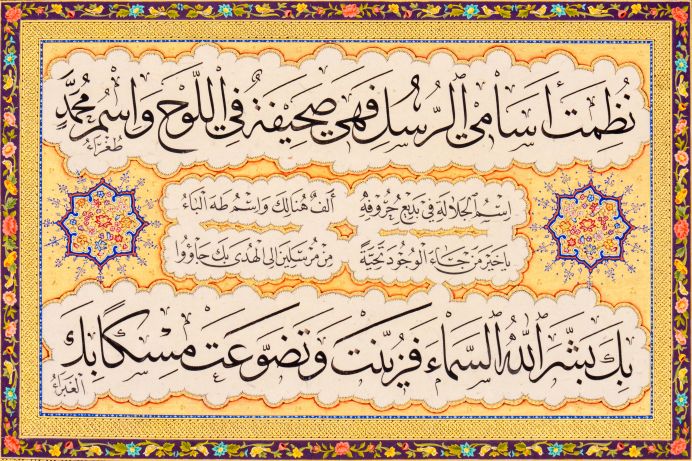 نُظِمَت أَسَامِي الرُّسْلِ فَهْيَ صَحِيفَةٌ فِي اللَّوْحِ وَاسْمُ مُحَمَّدٍ
طُغَرَاءُ
اِسْمُ الْجَلَالَةِ فِي بَدِيعِ حُرُوفِهِ أَلِفٌ هُنَالِكَ وَاسْمُ طَهَ الْبَاءُ
يَا خَيْرَ مَن جَاءَ الْوُجُودَ تَحِيَّةً مِنْ مُرْسَلِينَ إِلَى الْهُدَى بِكَ جَاؤُوا
بِكَ بَشَّرَ اللهُ السَّمَاءَ فَزُيِّنَت وَتَضَوَّعَت مِسْكًا بِكَ
الْغَبْرَاءُ